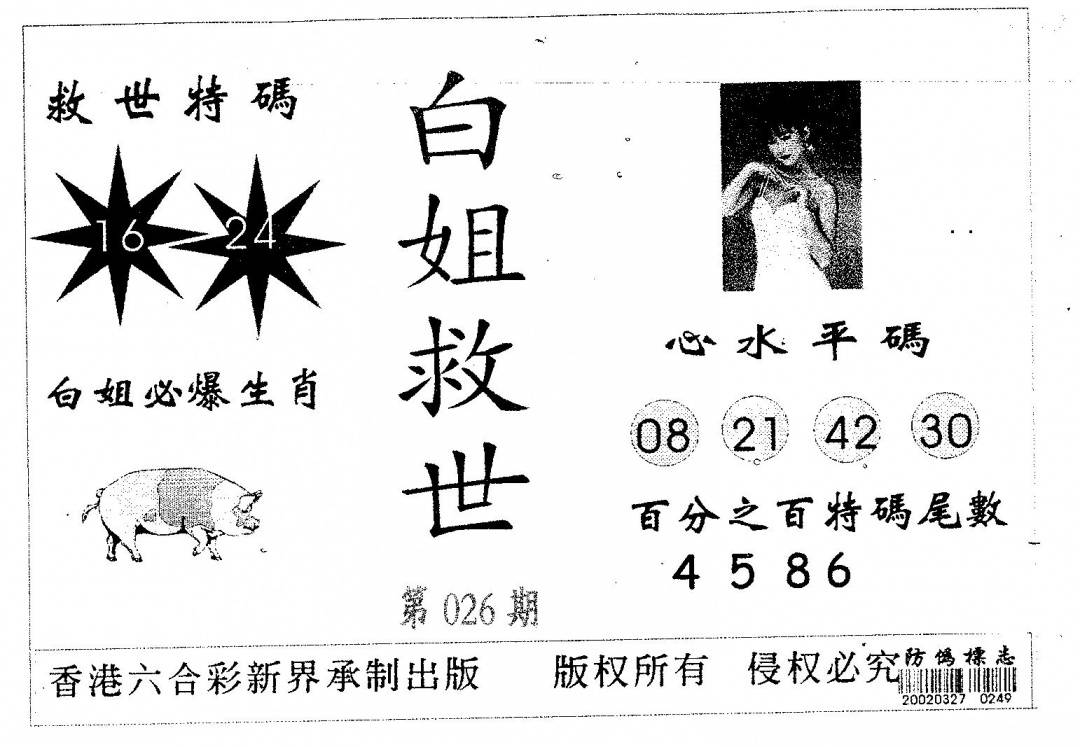 救世特碼
16 24
白姐必爆生肖
白姐救世
第026期
心水平碼
08 21 42 30
百分之百特碼尾數
4 5 8 6
香港六合彩新界承制出版 版权所有 侵权必究
防偽標志
20020327 0249